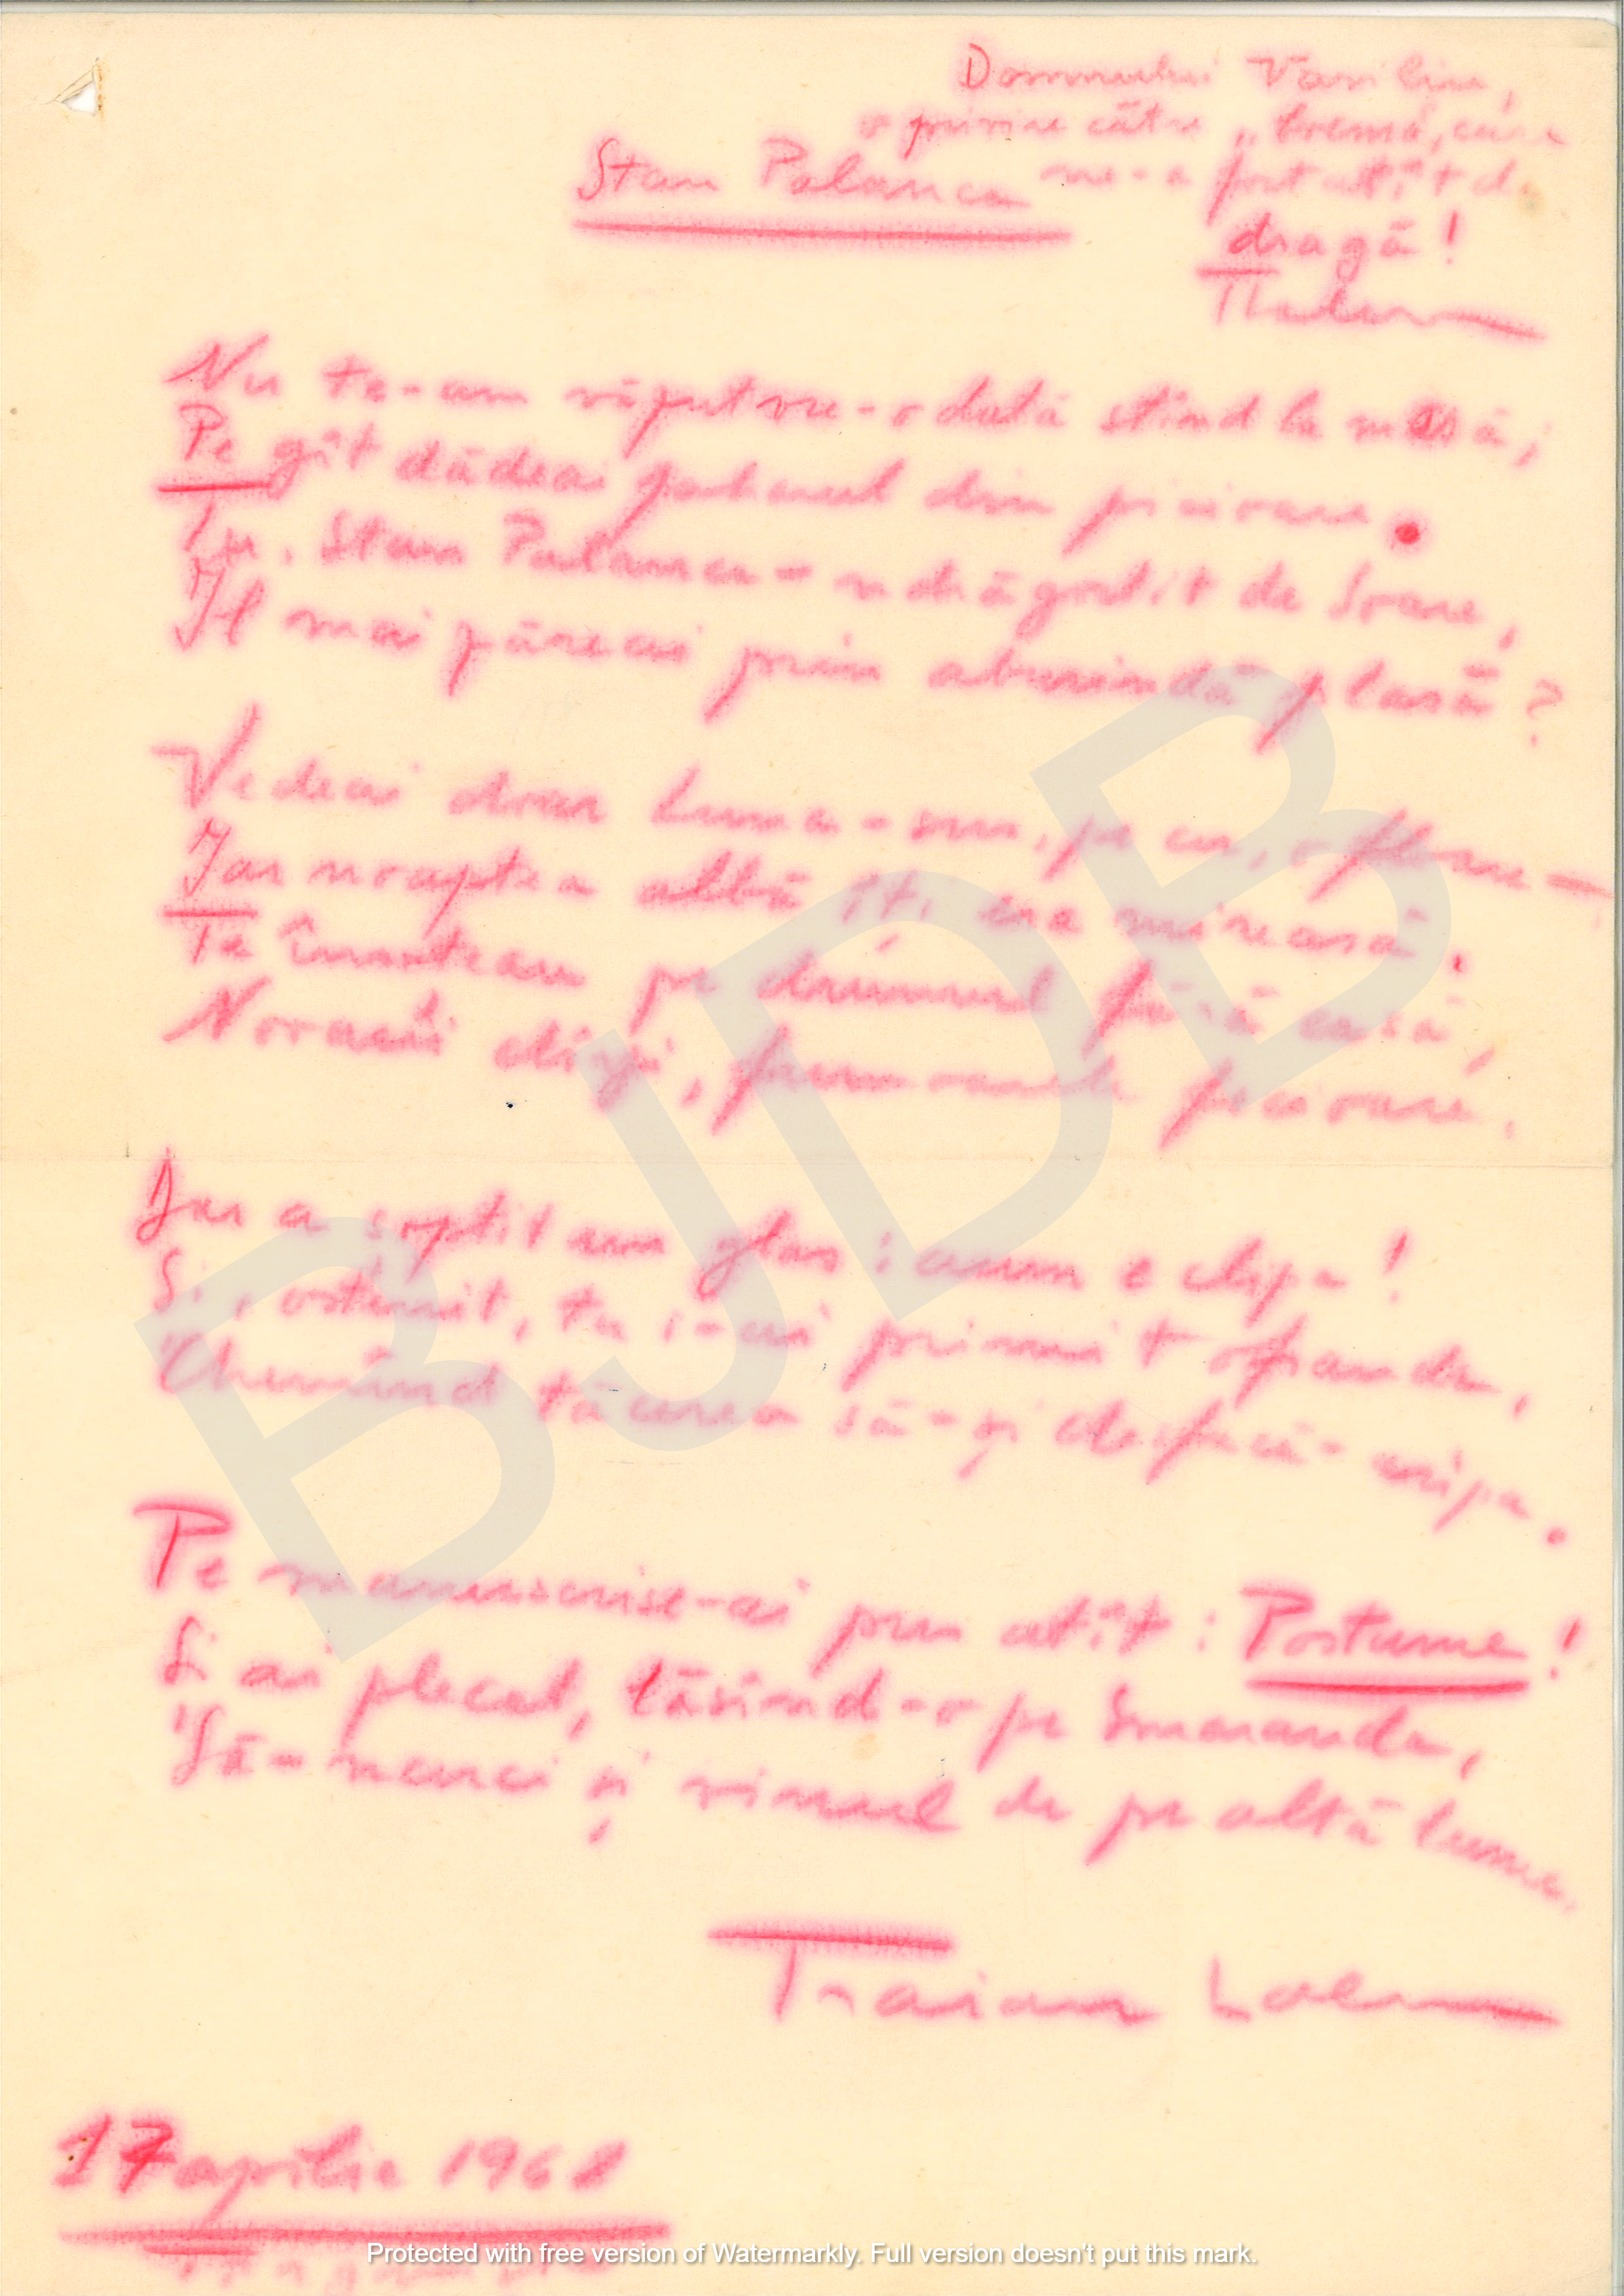 Domnului Vasiliu,
o privire către „boema, care
ne-a fost atît de
dragă!
Stan Palanca
Nu te-am văzut vre-o dată stînd la masă;
Pe gît dădeai paharul din picioare.
Tu, Stan Palanca - ndrăgostit de Soare,
Îl mai zăreai prin aburindă plasă?
Vedeai doar Luna - sus, pe cer, o floare —
Iar noaptea albă îți era mireasă.
Te însoteau pe drumul fără casă,
Norocii clipei, picioare.
Iar a șoptit un glas: acum e clipa!
Și, ostenit, tu i-ai primit ofranda,
Chemînd tăcerea să-și desfacă-aripa.
Pe manuscrise-ai pus atît: Postume!
Și ai plecat, lăsînd-o pe Smaranda,
Să-ncerci și vinul de pe altă lume.
Traian Lalescu
17 aprilie 1968
BJDB
Protected with free version of Watermarkly. Full version doesn't put this mark.